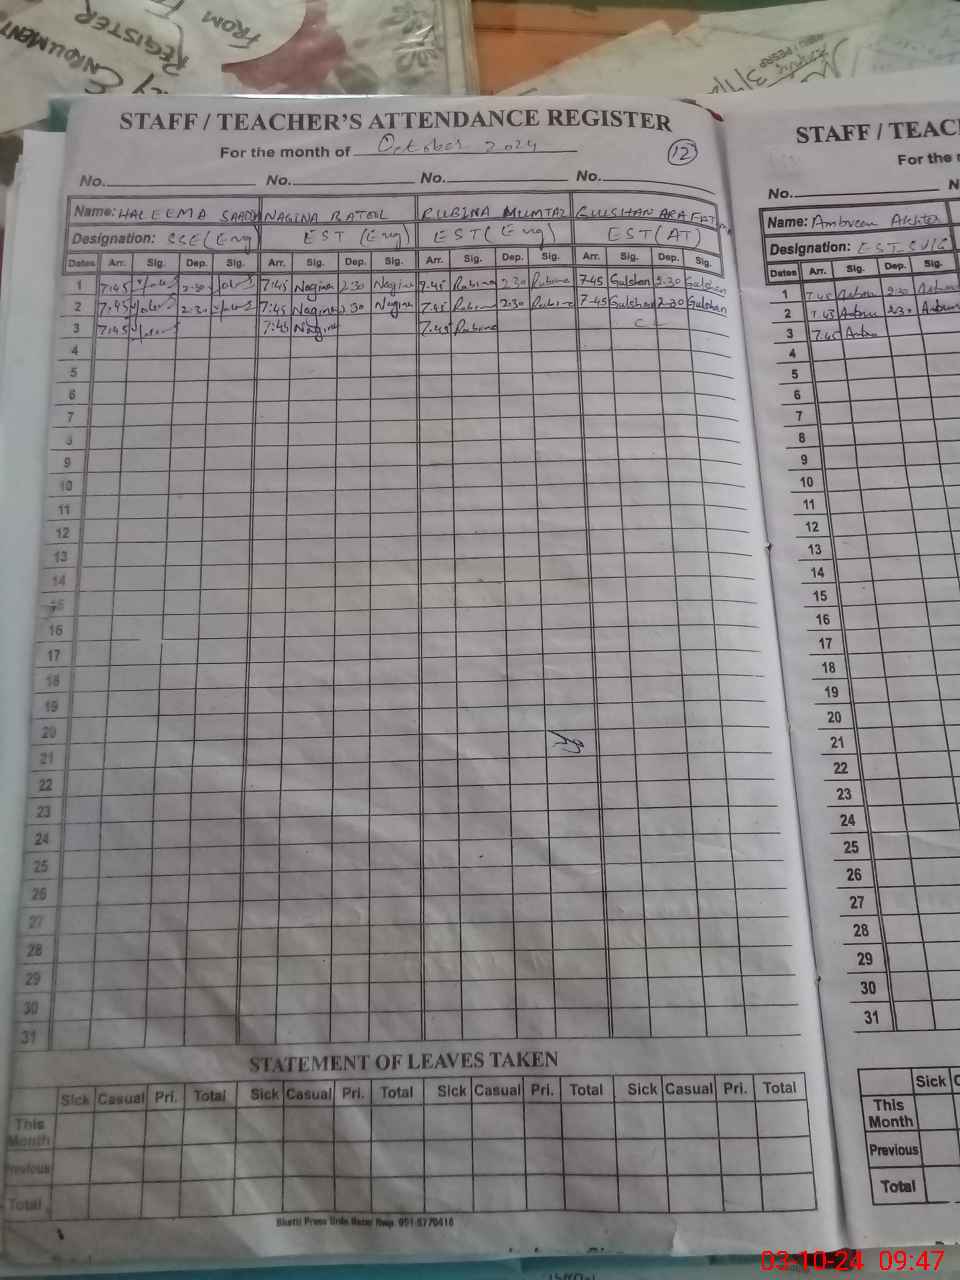 ENROLLMENT
REGISTER
FROM
STAFF / TEACHER'S ATTENDANCE REGISTER
For the month of October 2024
12
No. No. No. No.
Name: HALEEMA SAADIA NAGINA BATOOL RUBINA MUMTAZ GULSHAN ARA
Designation: SSE (Eng) EST (Eng) EST (Eng) EST (AT)
Dates Arr. Sig. Dep. Sig. Arr. Sig. Dep. Sig. Arr. Sig. Dep. Sig. Arr. Sig. Dep. Sig.
1 7:45 2:30 7:45 Nagina 2:30 Nagina 7:45 Rubina 2:30 Rubina 7-45 Gulshan 2:30 Gulshan
2 7:45 2:30 7:45 Nagina 2:30 Nagina 7:45 Rubina 2:30 Rubina 7-45 Gulshan 2:30 Gulshan
3 7:45 7:45 Nagina 7:45 Rubina C L
4
5
6
7
8
9
10
11
12
13
14
15
16
17
18
19
20
21
22
23
24
25
26
27
28
29
30
31
STATEMENT OF LEAVES TAKEN
Sick Casual Pri. Total Sick Casual Pri. Total Sick Casual Pri. Total Sick Casual Pri. Total
This Month
Previous
Total
Bhatti Press Urdu Bazar Rwp. 051-5770416
STAFF / TEAC
For the
No. N
Name: Ambreen Akhter
Designation: EST
Dates Arr. Sig. Dep. Sig.
1 7:45 2:30
2 7:45 2:30
3 7:45
4
5
6
7
8
9
10
11
12
13
14
15
16
17
18
19
20
21
22
23
24
25
26
27
28
29
30
31
Sick C
This Month
Previous
Total
03-10-24 09:47